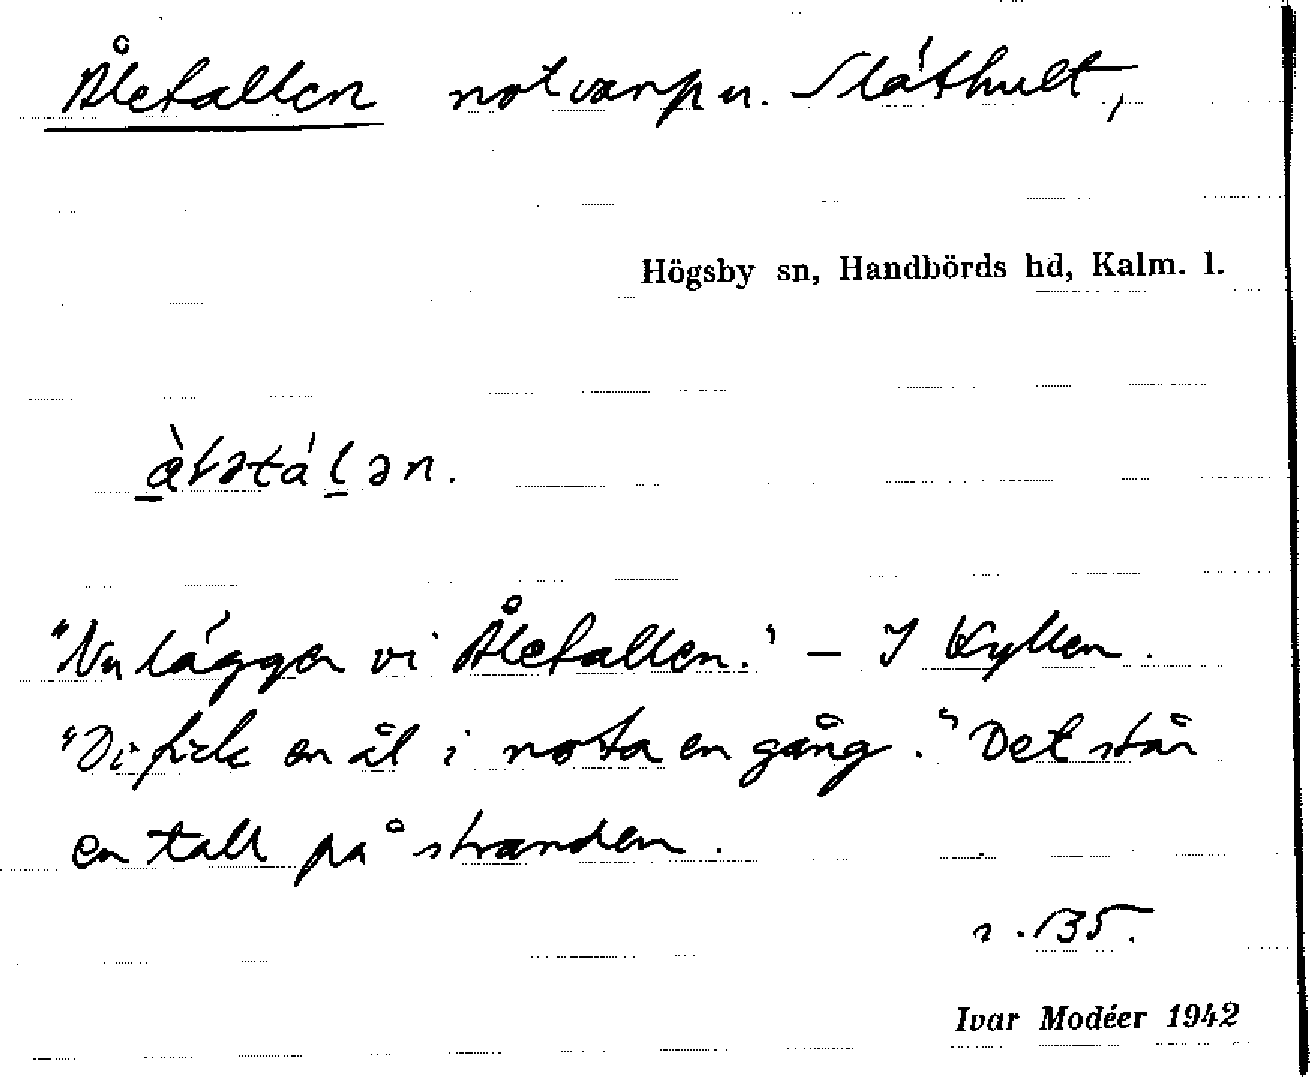 Åletallen notvarp u. Slåthult,
Högsby sn, Handbörds hd, Kalm. l.
"Nu lägger vi Åletallen." – I Kyllen.
"Di fick en ål i nota en gång." Det står
en tall på stranden.
s. 135.
Ivar Modéer 1942